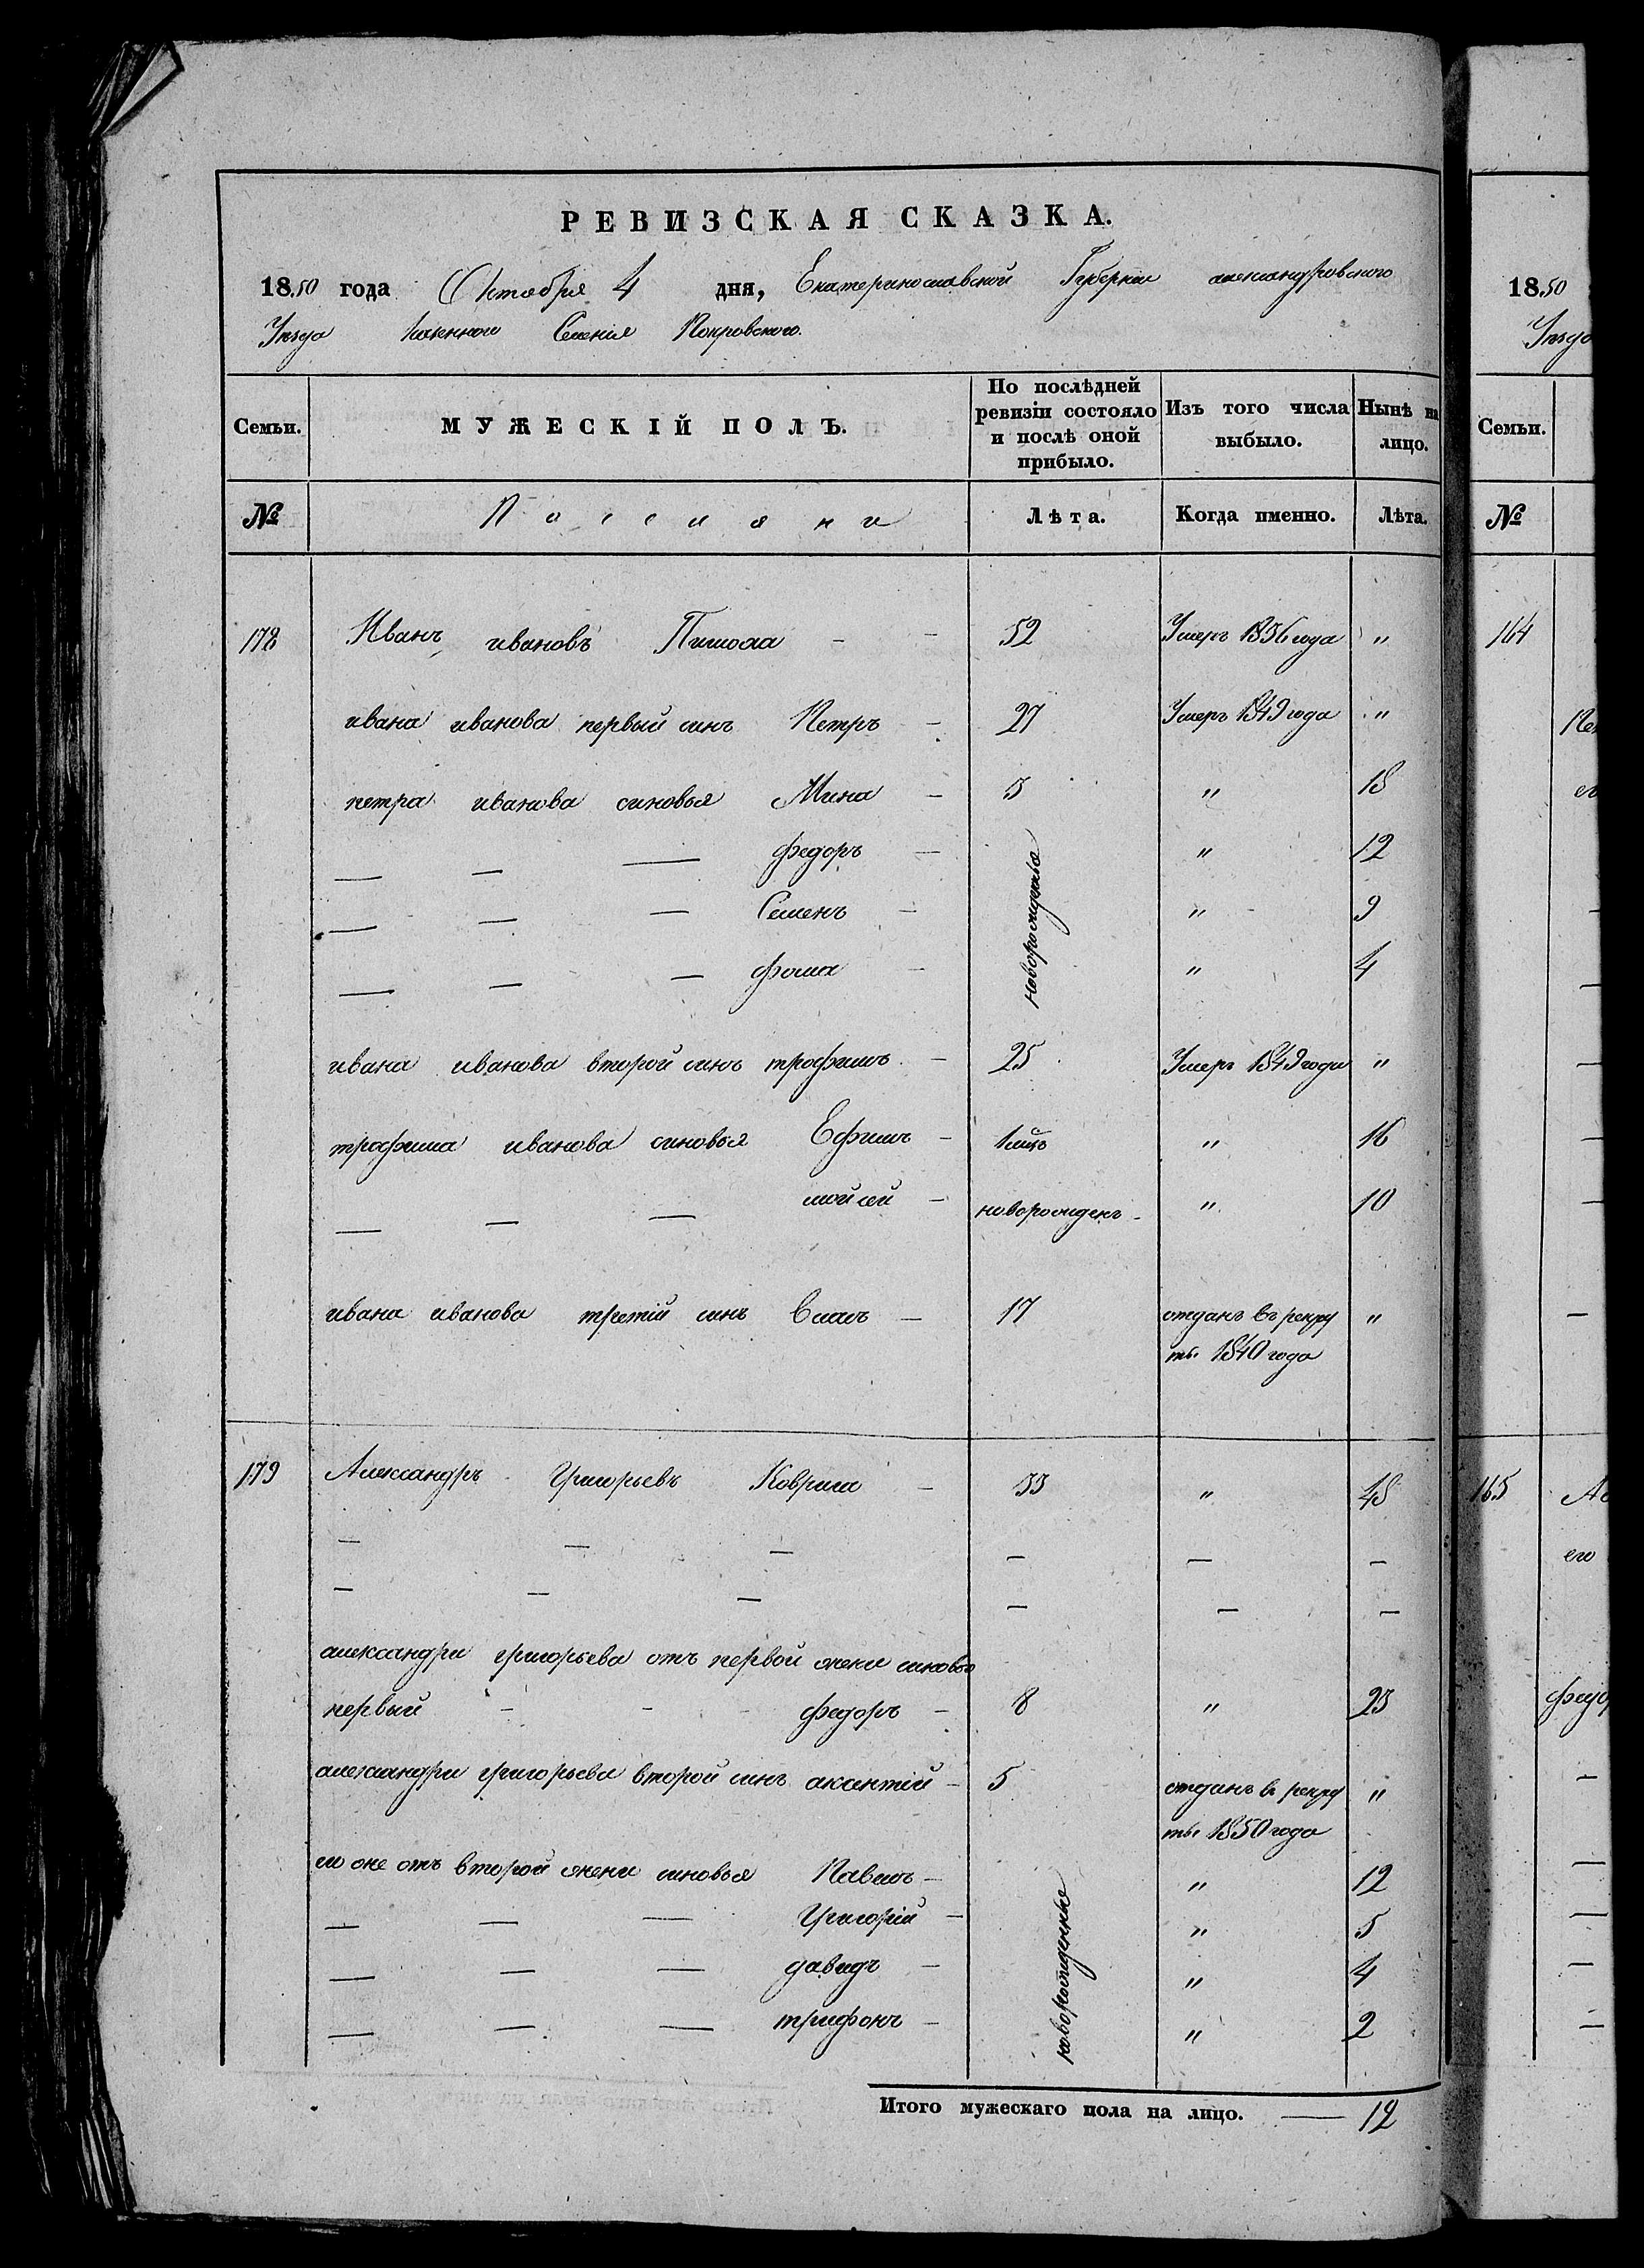 РЕВИЗСКАЯ СКАЗКА.
1850 года Октября 4 дня, Екатеринославской Губернии александровского
Уезда Казенного Селения Покровского.
Семьи. МУЖЕСКІЙ ПОЛЪ. По послѣдней ревизіи состояло и послѣ оной прибыло. Изъ того числа выбыло. Нынѣ на лицо.
№ Поселяни Лѣта. Когда именно. Лѣта.
178 Иванъ ивановъ - - 52 Умеръ 1836 года "
ивана иванова первый синъ Петръ - 27 Умеръ 1849 года "
петра иванова синовья Мина - 3 " 18
— — — федоръ - новорожденные " 12
— — — Семенъ - " 9
— — — фома - " 4
ивана иванова второй синъ трофимъ - 25 Умеръ 1849 года "
трофима иванова синовья Ефимъ - 1 " 16
— — — мойсей - новорожденъ - " 10
ивана иванова третій синъ Власъ - 17 отданъ въ рекру
ты 1840 года "
179 Александръ Григорьевъ Коврига - 33 " 48
— — — — — —
— — — — — —
александра григорьева отъ первой жени синовья
первый - - - федоръ - 8 " 23
александра григорьева второй синъ акантій - 5 отданъ в рекру
ты 1850 года "
его же отъ второй жени синовья Павелъ - новорожденные " 12
— — — Григорій - " 5
— — — давидъ - " 4
— — — трифонъ - " 2
Итого мужескаго пола на лицо. — 12
1850
Уезд
Семьи.
№
164
165
его
федо